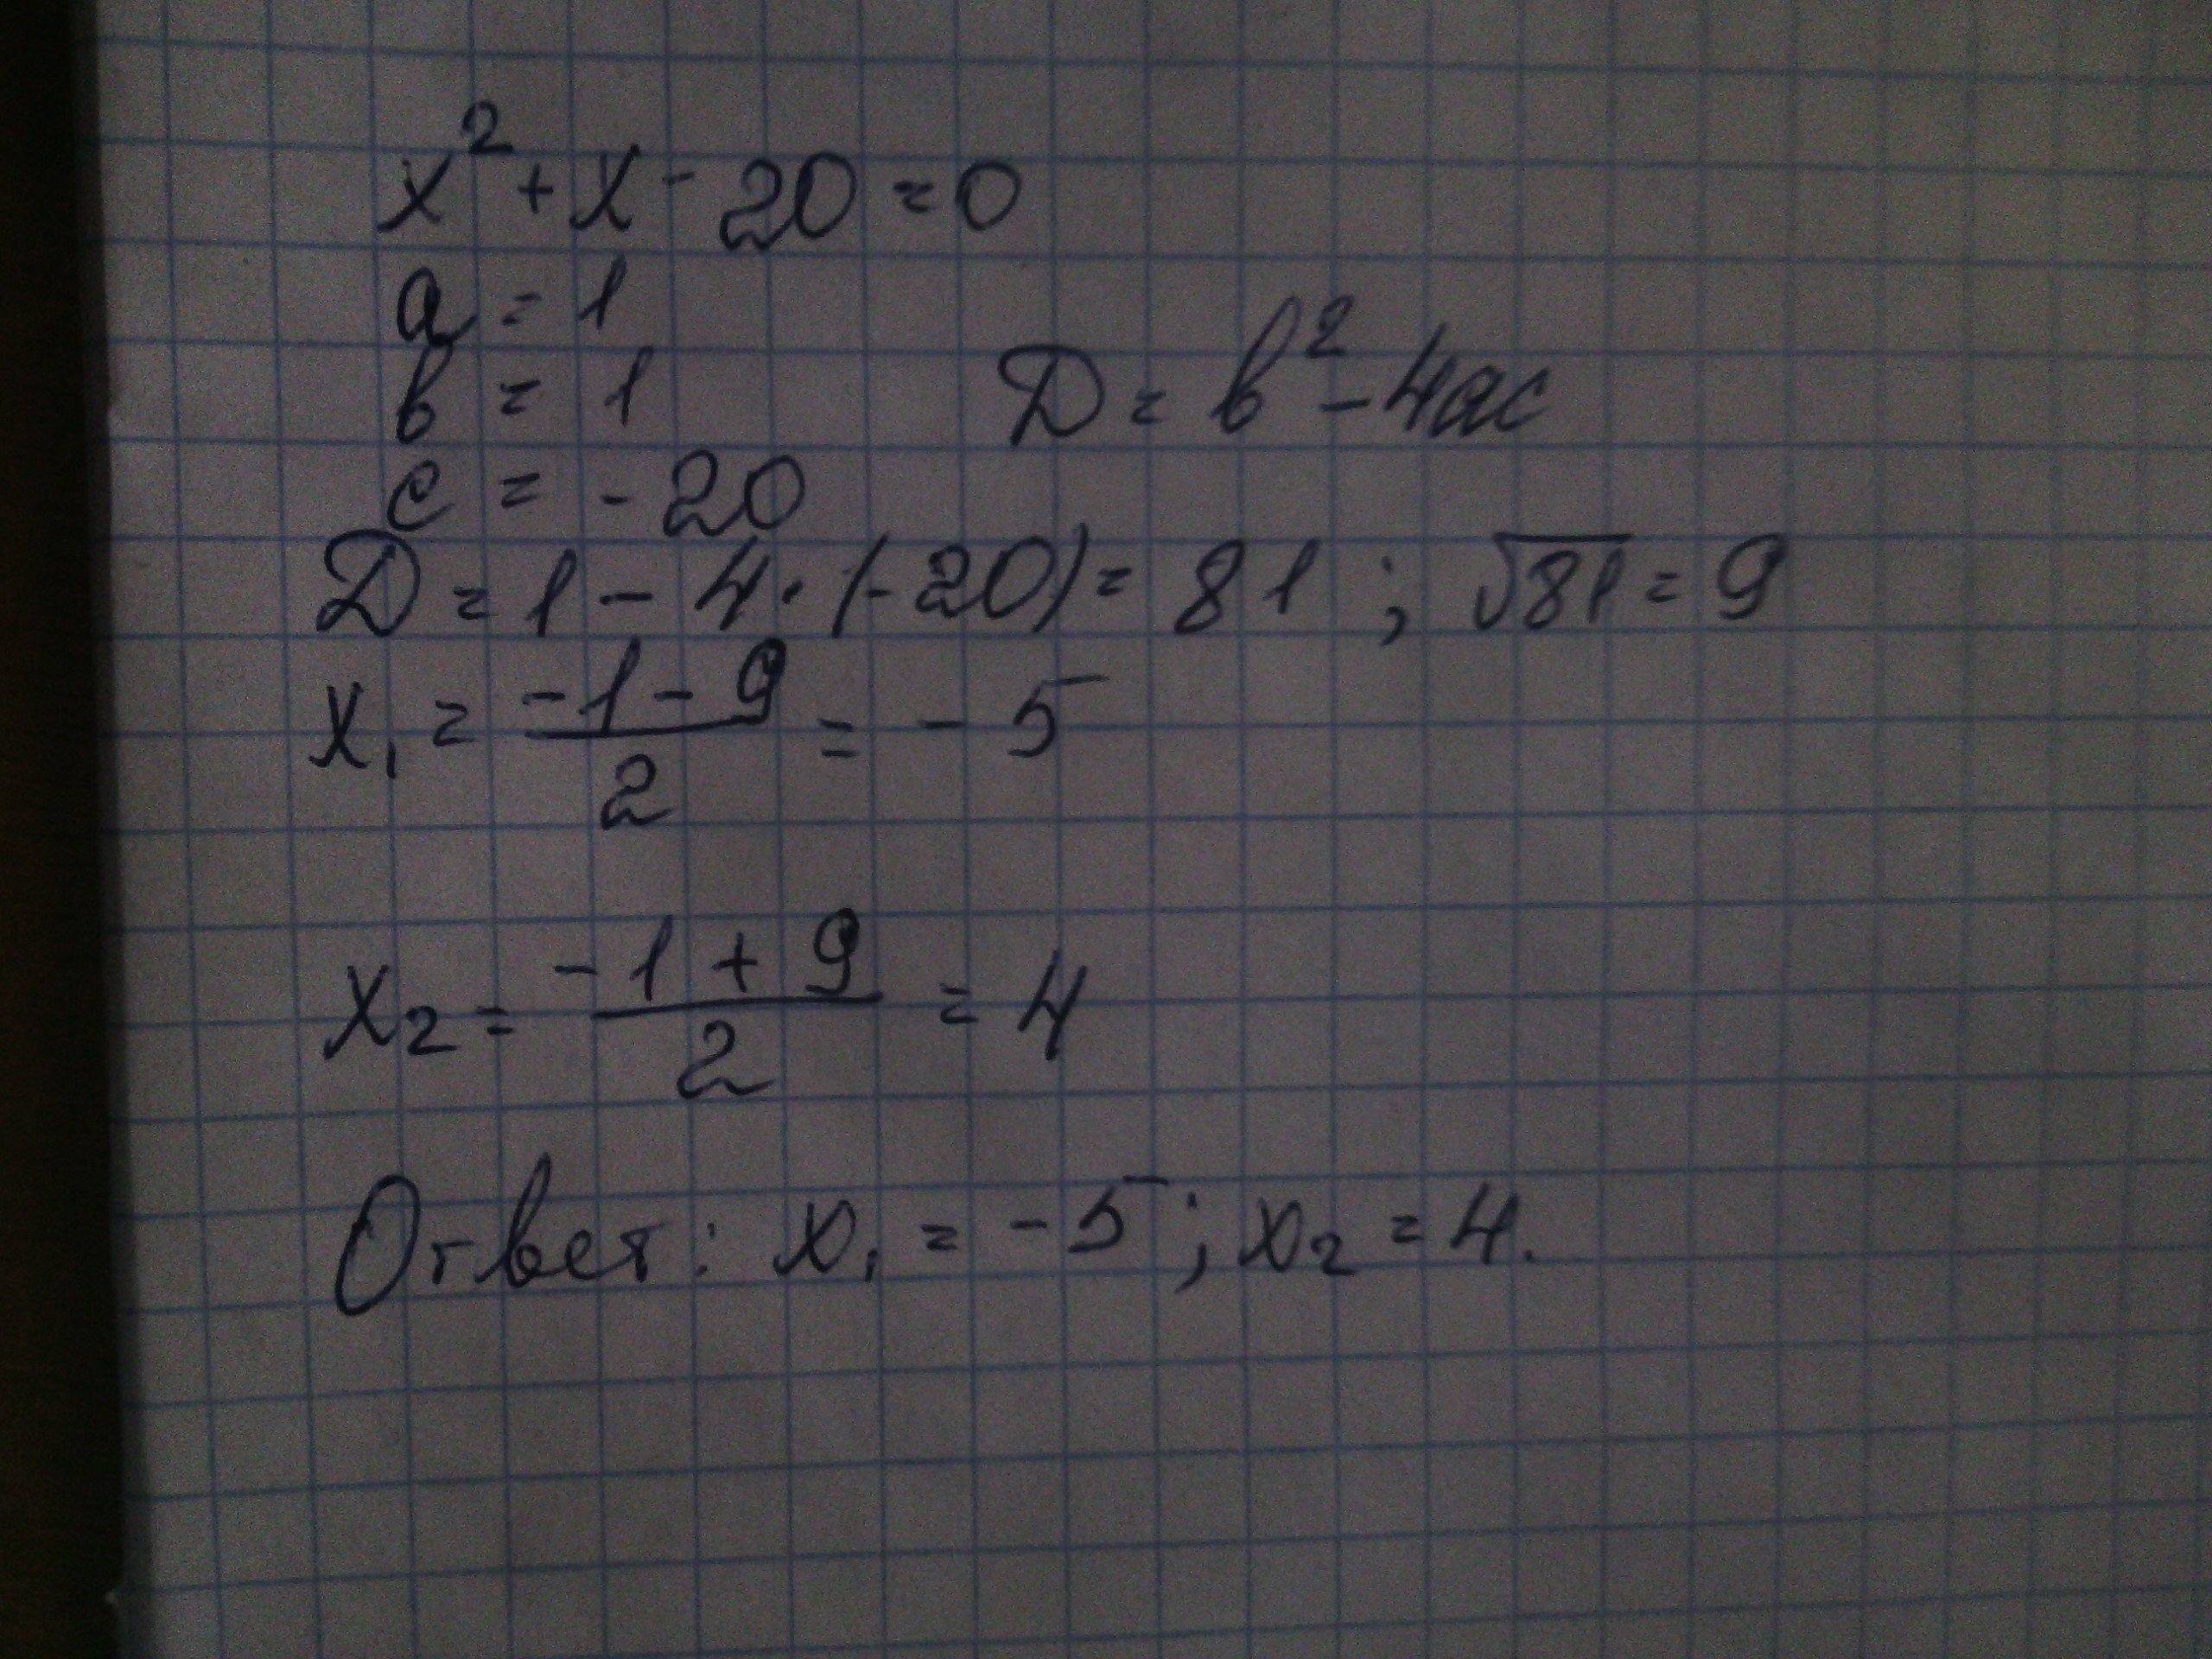 x² + x - 20 = 0
a = 1
в = 1
D = в² - 4ac
c = -20
D = 1 - 4 · (-20) = 81 ; √81 = 9
x₁ = (-1 - 9)/2 = -5
x₂ = (-1 + 9)/2 = 4
Ответ: x₁ = -5; x₂ = 4.